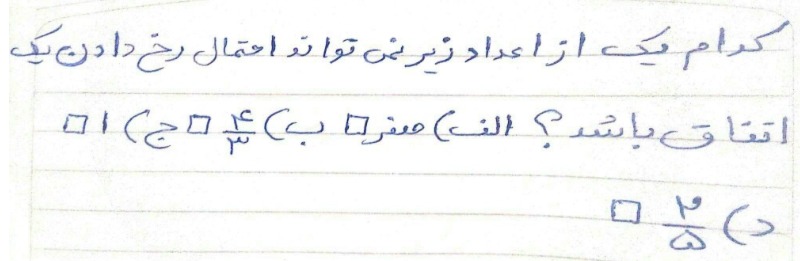 کدام یک از اعداد زیر نمی تواند احتمال رخ دادن یک
اتفاق باشد؟ الف) صفر □ ب) ۴/۳ □ ج) ۱ □
د) ۲/۵ □